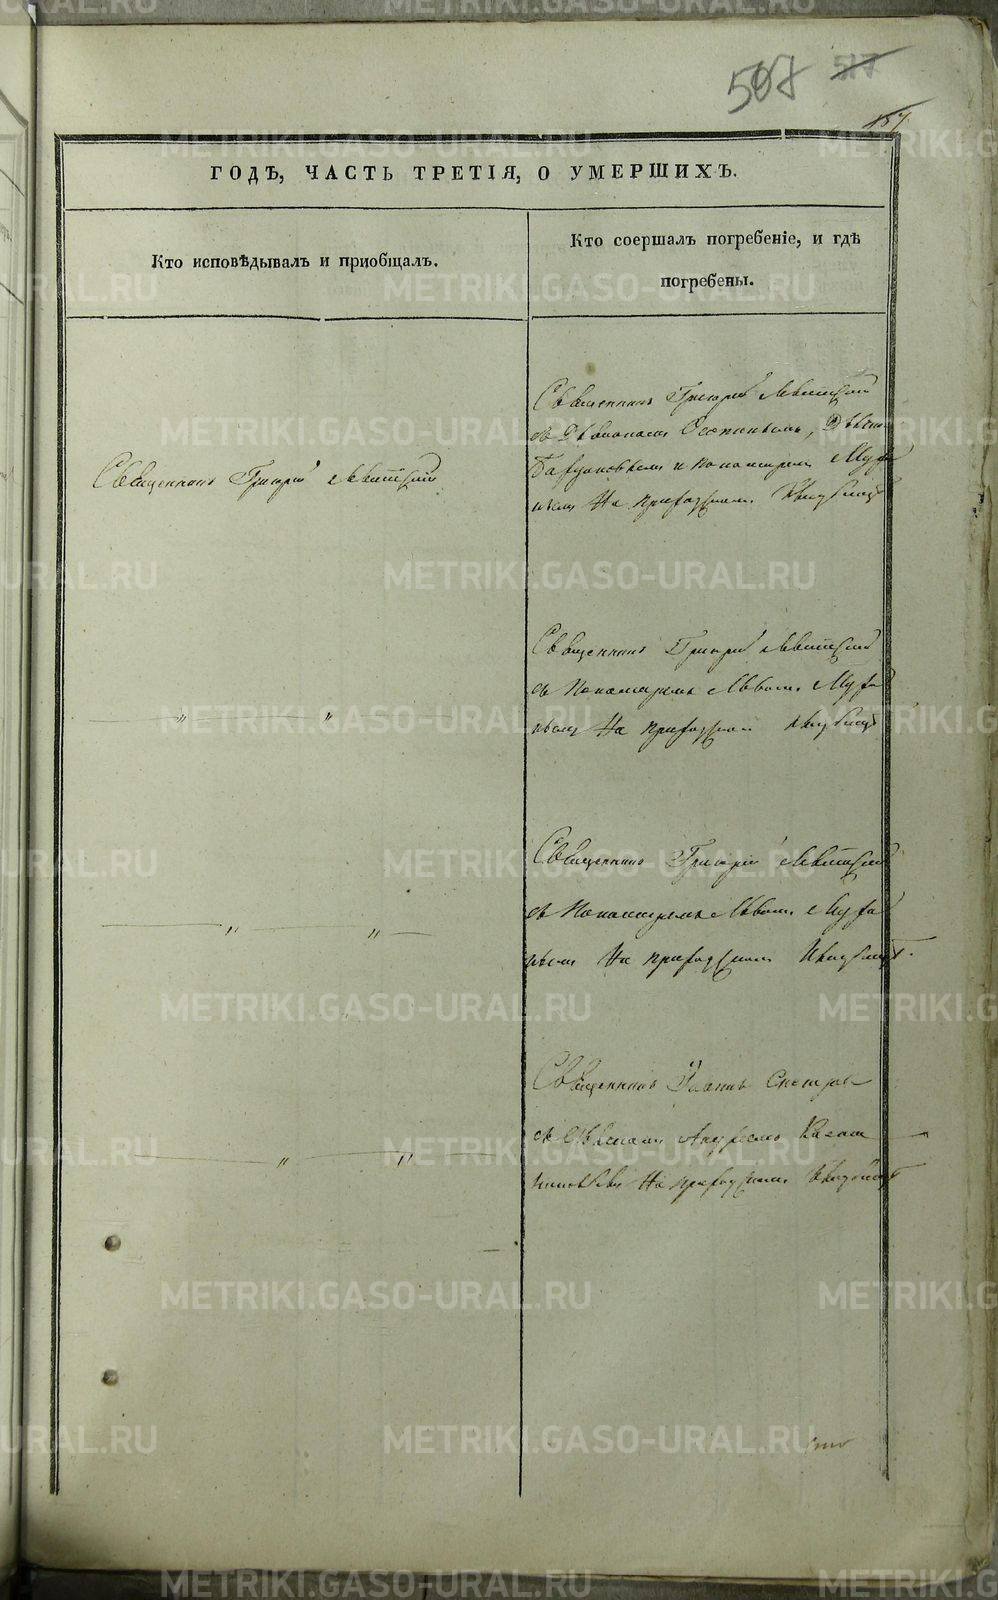 508 517
157
ГОДѢ, ЧАСТЬ ТРЕТІЯ, О УМЕРШИХЪ.
Кто исповѣдывалъ и приобщалъ.
Кто соершалъ погребеніе, и гдѣ
погребены.
Священникъ Григорій Левитскій
Священникъ Григорій Левитскій
съ Діакономъ
и Пономаремъ
На приходскомъ Кладбищѣ
" "
Священникъ Григорій Левитскій
съ Пономаремъ Львомъ
На приходскомъ кладбищѣ
" "
Священникъ Григорій Левитскій
съ Пономаремъ Львомъ
На приходскомъ Кладбищѣ.
" "
Священникъ Іоаннъ
съ Андреемъ
На приходскомъ Кладбищѣ
METRIKI.GASO-URAL.RU